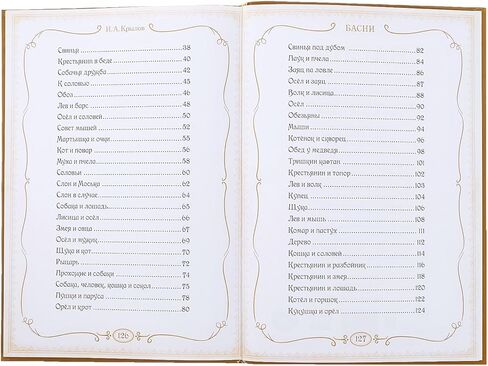 И.А. Крылов
Свинья 38
Крестьянин в беде 40
Собачья дружба 42
К соловью 45
Обоз 46
Лев и барс 48
Осёл и соловей 50
Совет мышей 52
Мартышка и очки 55
Кот и повар 56
Муха и пчела 58
Соловьи 60
Слон и Моська 62
Слон в случае 64
Собака и лошадь 65
Лисица и осёл 66
Змея и овца 67
Осёл и мужик 69
Щука и кот 70
Рыцарь 72
Прохожие и собаки 74
Собака, человек, кошка и сокол 75
Пушки и паруса 78
Орёл и крот 80
126
БАСНИ
Свинья под дубом 82
Паук и пчела 84
Заяц на ловле 86
Осёл и заяц 87
Волк и лисица 88
Осёл 90
Обезьяны 92
Мыши 94
Котёнок и скворец 96
Обед у медведя 98
Тришкин кафтан 101
Крестьянин и топор 102
Лев и волк 103
Купец 104
Щука 106
Лев и мышь 108
Комар и пастух 111
Дерево 112
Кошка и соловей 114
Крестьянин и разбойник 116
Крестьянин и змея 118
Крестьянин и лошадь 120
Котёл и горшок 122
Кукушка и орёл 124
127